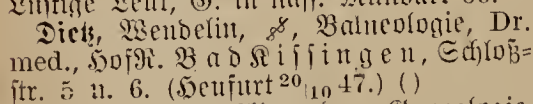 Dietz, Wendelin, Balneologie, Dr.
med., HofR. Bad Kissingen, Schloß=
str. 5 u. 6. (Heufurt 20/10 47.) ()